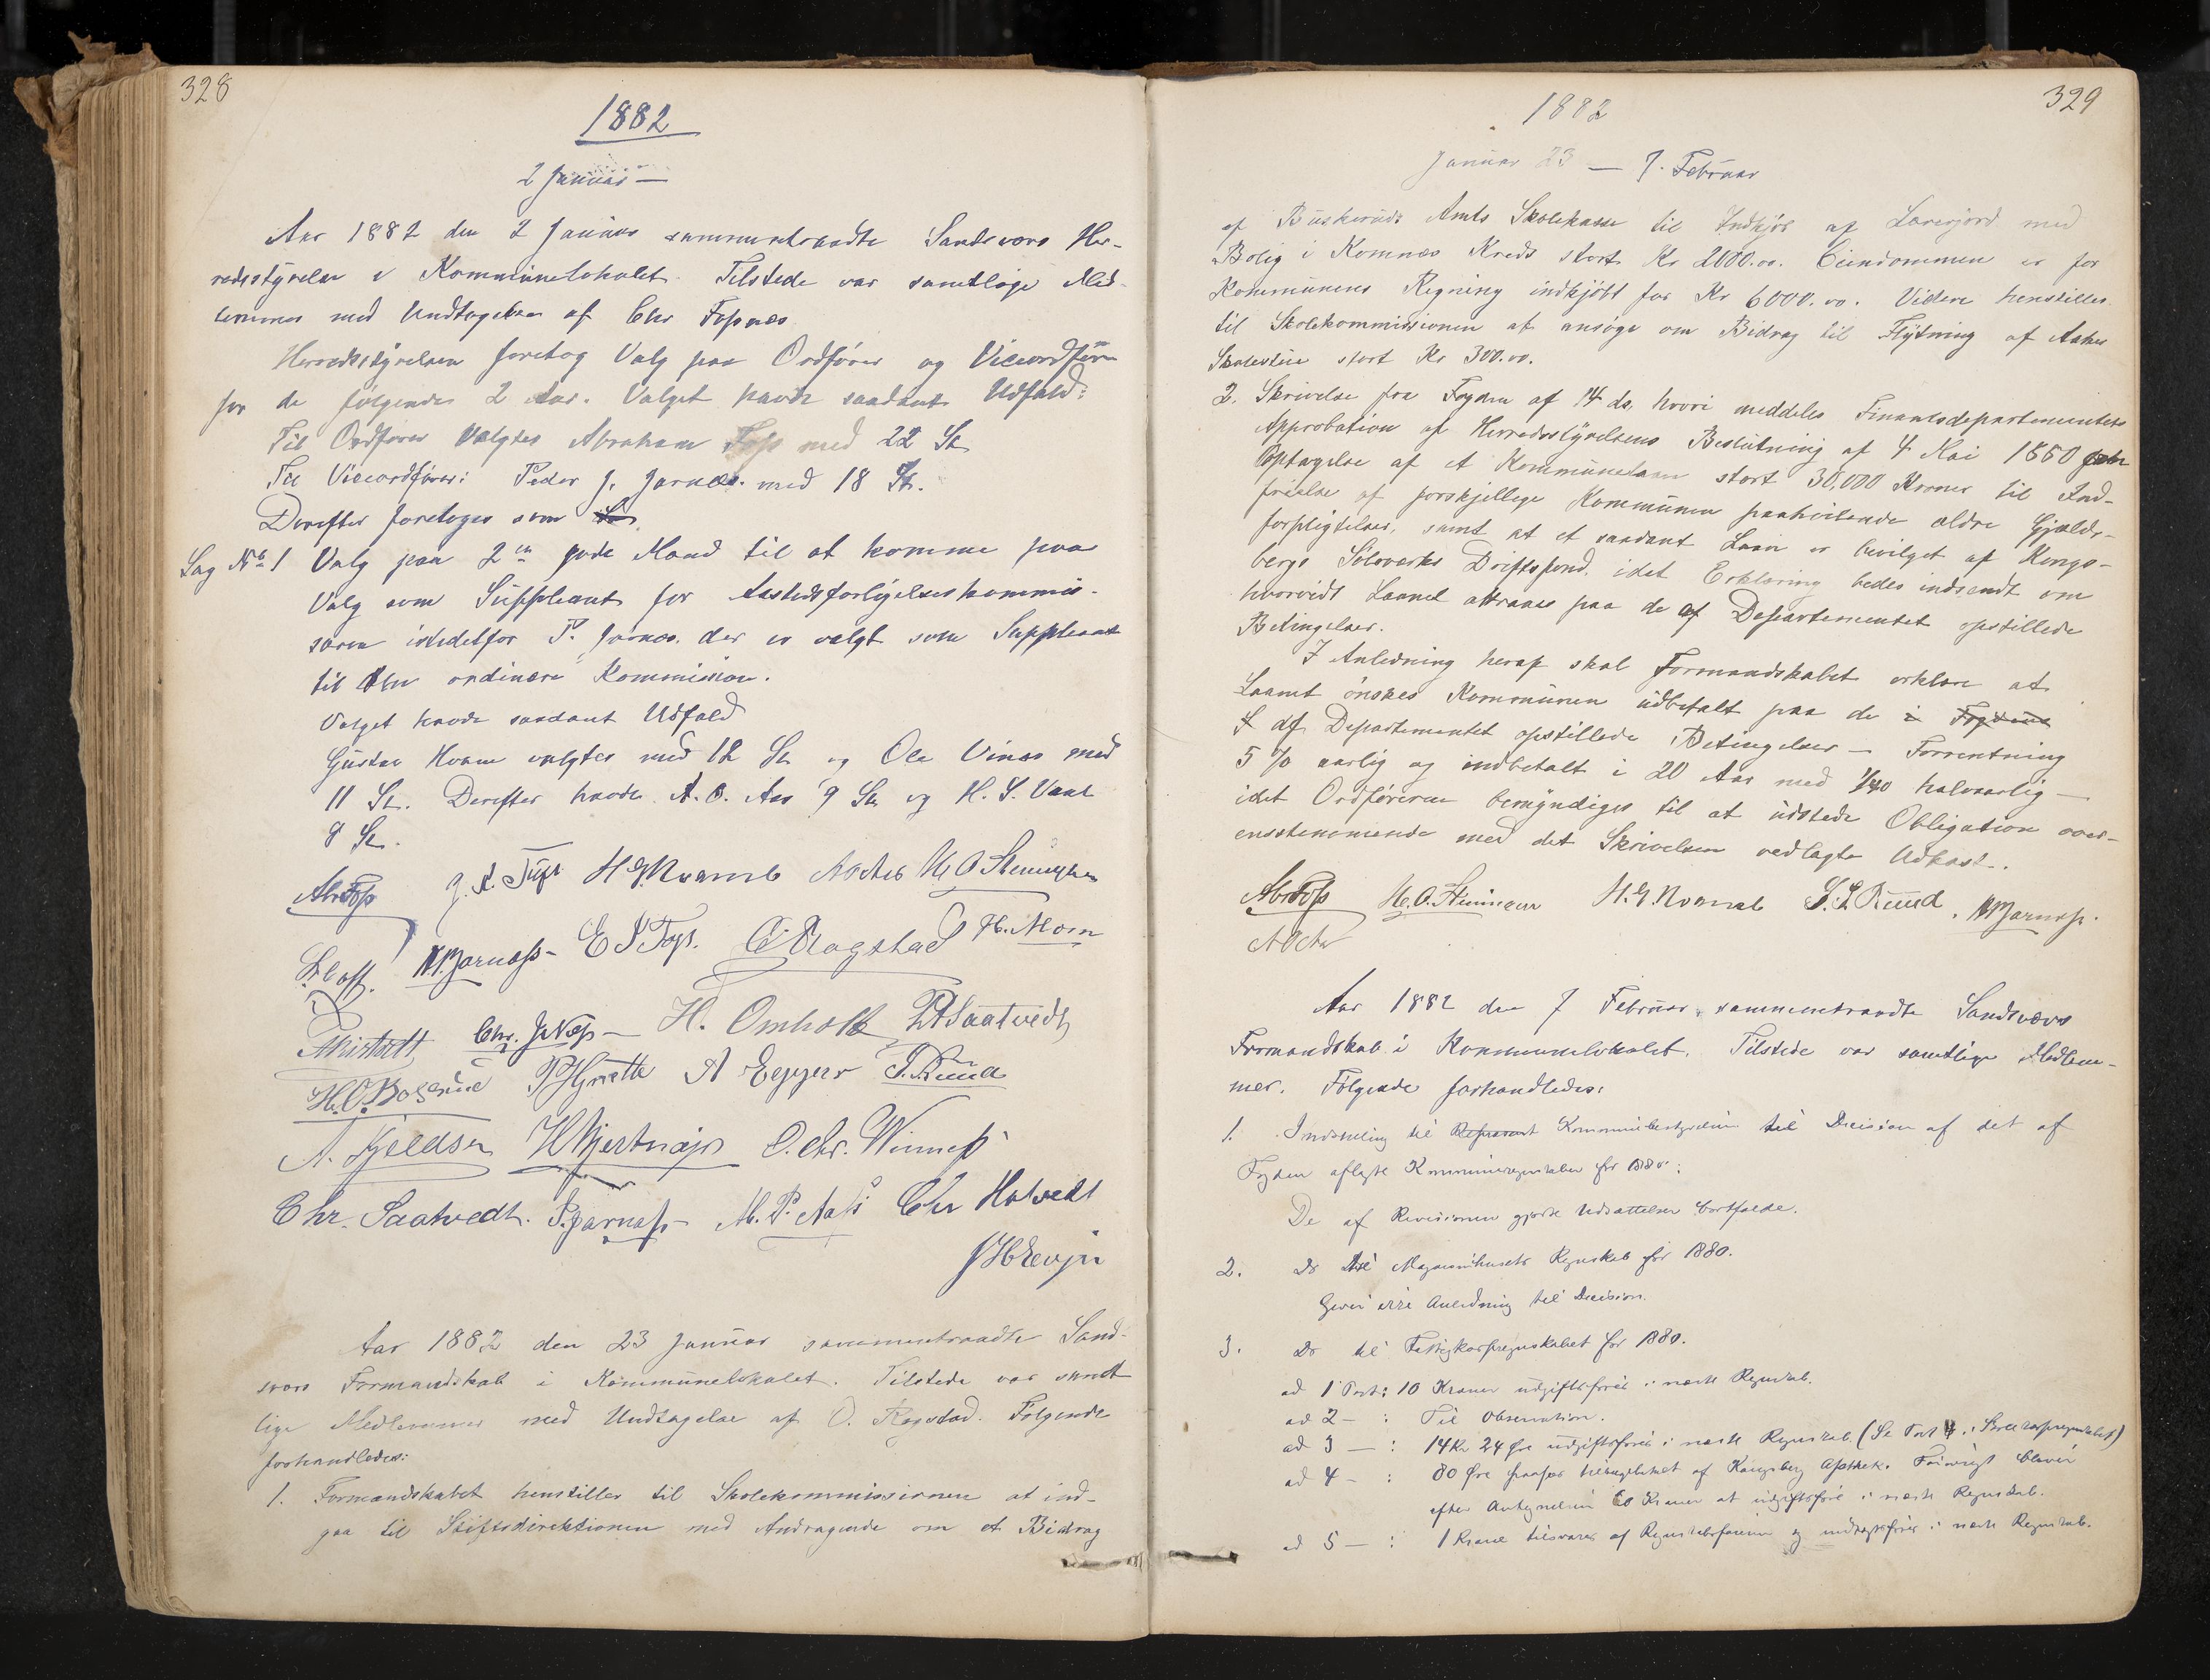 328
1882
2 Januar —
Aar 1882 den 2 Januar sammentraadte Sandsværs Her-
redsstyrelse i Kommunelokalet. Tilstede var samtlige Med-
lemmer med Undtagelse af Chr Fossnæs
Herredsstyrelsen foretog Valg paa Ordfører og Viceordfører
for de følgende 2 Aar. Valget havde saadant Udfald:
Til Ordfører valgtes Abraham Foss med 22 St.
Til Viceordfører: Peder J. Jarnæs med 18 St.
Derefter foretoges som
Sag No 1 Valg paa 2de gode Mænd til at komme paa
Valg som Suppleant for Aastedsforligelseskommis-
særen istedetfor P. Jarnæs der er valgt som Suppleant
til den ordinære Kommission.
Valget havde saadant Udfald
Gustav Hvam valgtes med 12 St og Ole Vinæs med
11 St. Derefter havde A. O. Aas 9 St og H. S.
8 St.
AbrFoss J. A. H G Kvarnb M. O. Steningen
NJarnass E S Foss. O Ragstad H. Moen
Chr. H. Omholt Saatvedt
H. O. Bollerud P Grette A Eggers S. Ruud
A. Kjeldsen H Hjertnæss O. Chr. Winness
Chr. Saatvedt. P. Jarnass M. P. Aass Chr Hotvedt
J H Evju
Aar 1882 den 23 Januar sammentraadte Sand-
sværs Formandskab i Kommunelokalet. Tilstede var samt
lige Medlemmer med Undtagelse af O. Ragstad. Følgende
forhandledes:
1. Formandskabet henstiller til Skolekommissionen at ind-
gaa til Stiftsdirektionen med Andragende om et Bidrag
329
1882
Januar 23 — 7. Februar
af Buskeruds Amts Skolekasse til Indkjøb af Lærerjord med
Bolig i Komnæs Kreds stort Kr 2000.00. Eiendommen er for
Kommunens Regning indkjøbt for Kr 6000.00. Videre henstilles
til Skolekommissionen at ansøge om Bidrag til Flytning af Aaker
Skolestue stort Kr 300.00.
2. Skrivelse fra Fogden af 14 ds, hvori meddeles Finantsdepartementets
Approbation af Herredsstyrelsens Beslutning af 4 Mai 1880
Optagelse af et Kommunelaan stort 30,000 Kroner til Ind-
frielse af forskjellige Kommunen paahvilende ældre Gjælds-
forpligtelser, samt at et saadant Laan er bevilget af Kongs-
bergs Sølvværks Driftsfond, idet Erklæring bedes indsendt om
hvorvidt Laanet attraaes paa de af Departementet opstillede
Betingelser.
I Anledning heraf skal Formandskabet erklære at
Laanet ønskes Kommunen udbetalt paa de i Fogdens
S af Departementet opstillede Betingelser — Forrentning
5 % aarlig og indbetalt i 20 Aar med 1/40 halvaarlig —
idet Ordføreren bemyndiges til at udstede Obligation over-
ensstemmende med det Skrivelsen vedlagte Udkast.
AbrFoss M. O. Steningen H. G. Kvarnb S. S. Ruud. NJarnass.
Aar 1882 den 7 Februar sammentraadte Sandsværs
Formandskab i Kommunelokalet. Tilstede var samtlige Medlem-
mer. Følgende forhandledes:
1. Indstilling til Kommunebestyrelsen til Decision af det af
Fogden aflagte Kommuneregnskaber for 1880:
De af Revisionen gjorte Udsættelser bortfalde.
2. Do til Magasinhusets Regnskab for 1880.
Giver ikke Anledning til Decision.
3. Do til Fattigkasseregnskabet for 1880.
ad 1 Post: 10 Kroner udgiftsføres i næste Regnskab.
ad 2 — : Til Observation.
ad 3 — : 14 Kr 24 Øre udgiftsføres i næste Regnskab. (Se Post 4 i Skolekasseregnskabet)
ad 4 — : 80 Øre paasees tilbagebetalt af Kongsberg Apothek. Forøvrigt bliver
efter Antegnelsen 60 Kroner at udgiftsføre i næste Regnskab.
ad 5 — : 1 Krone tilsvares af Regnskabsføreren og indtægtsføres i næste Regnskab.